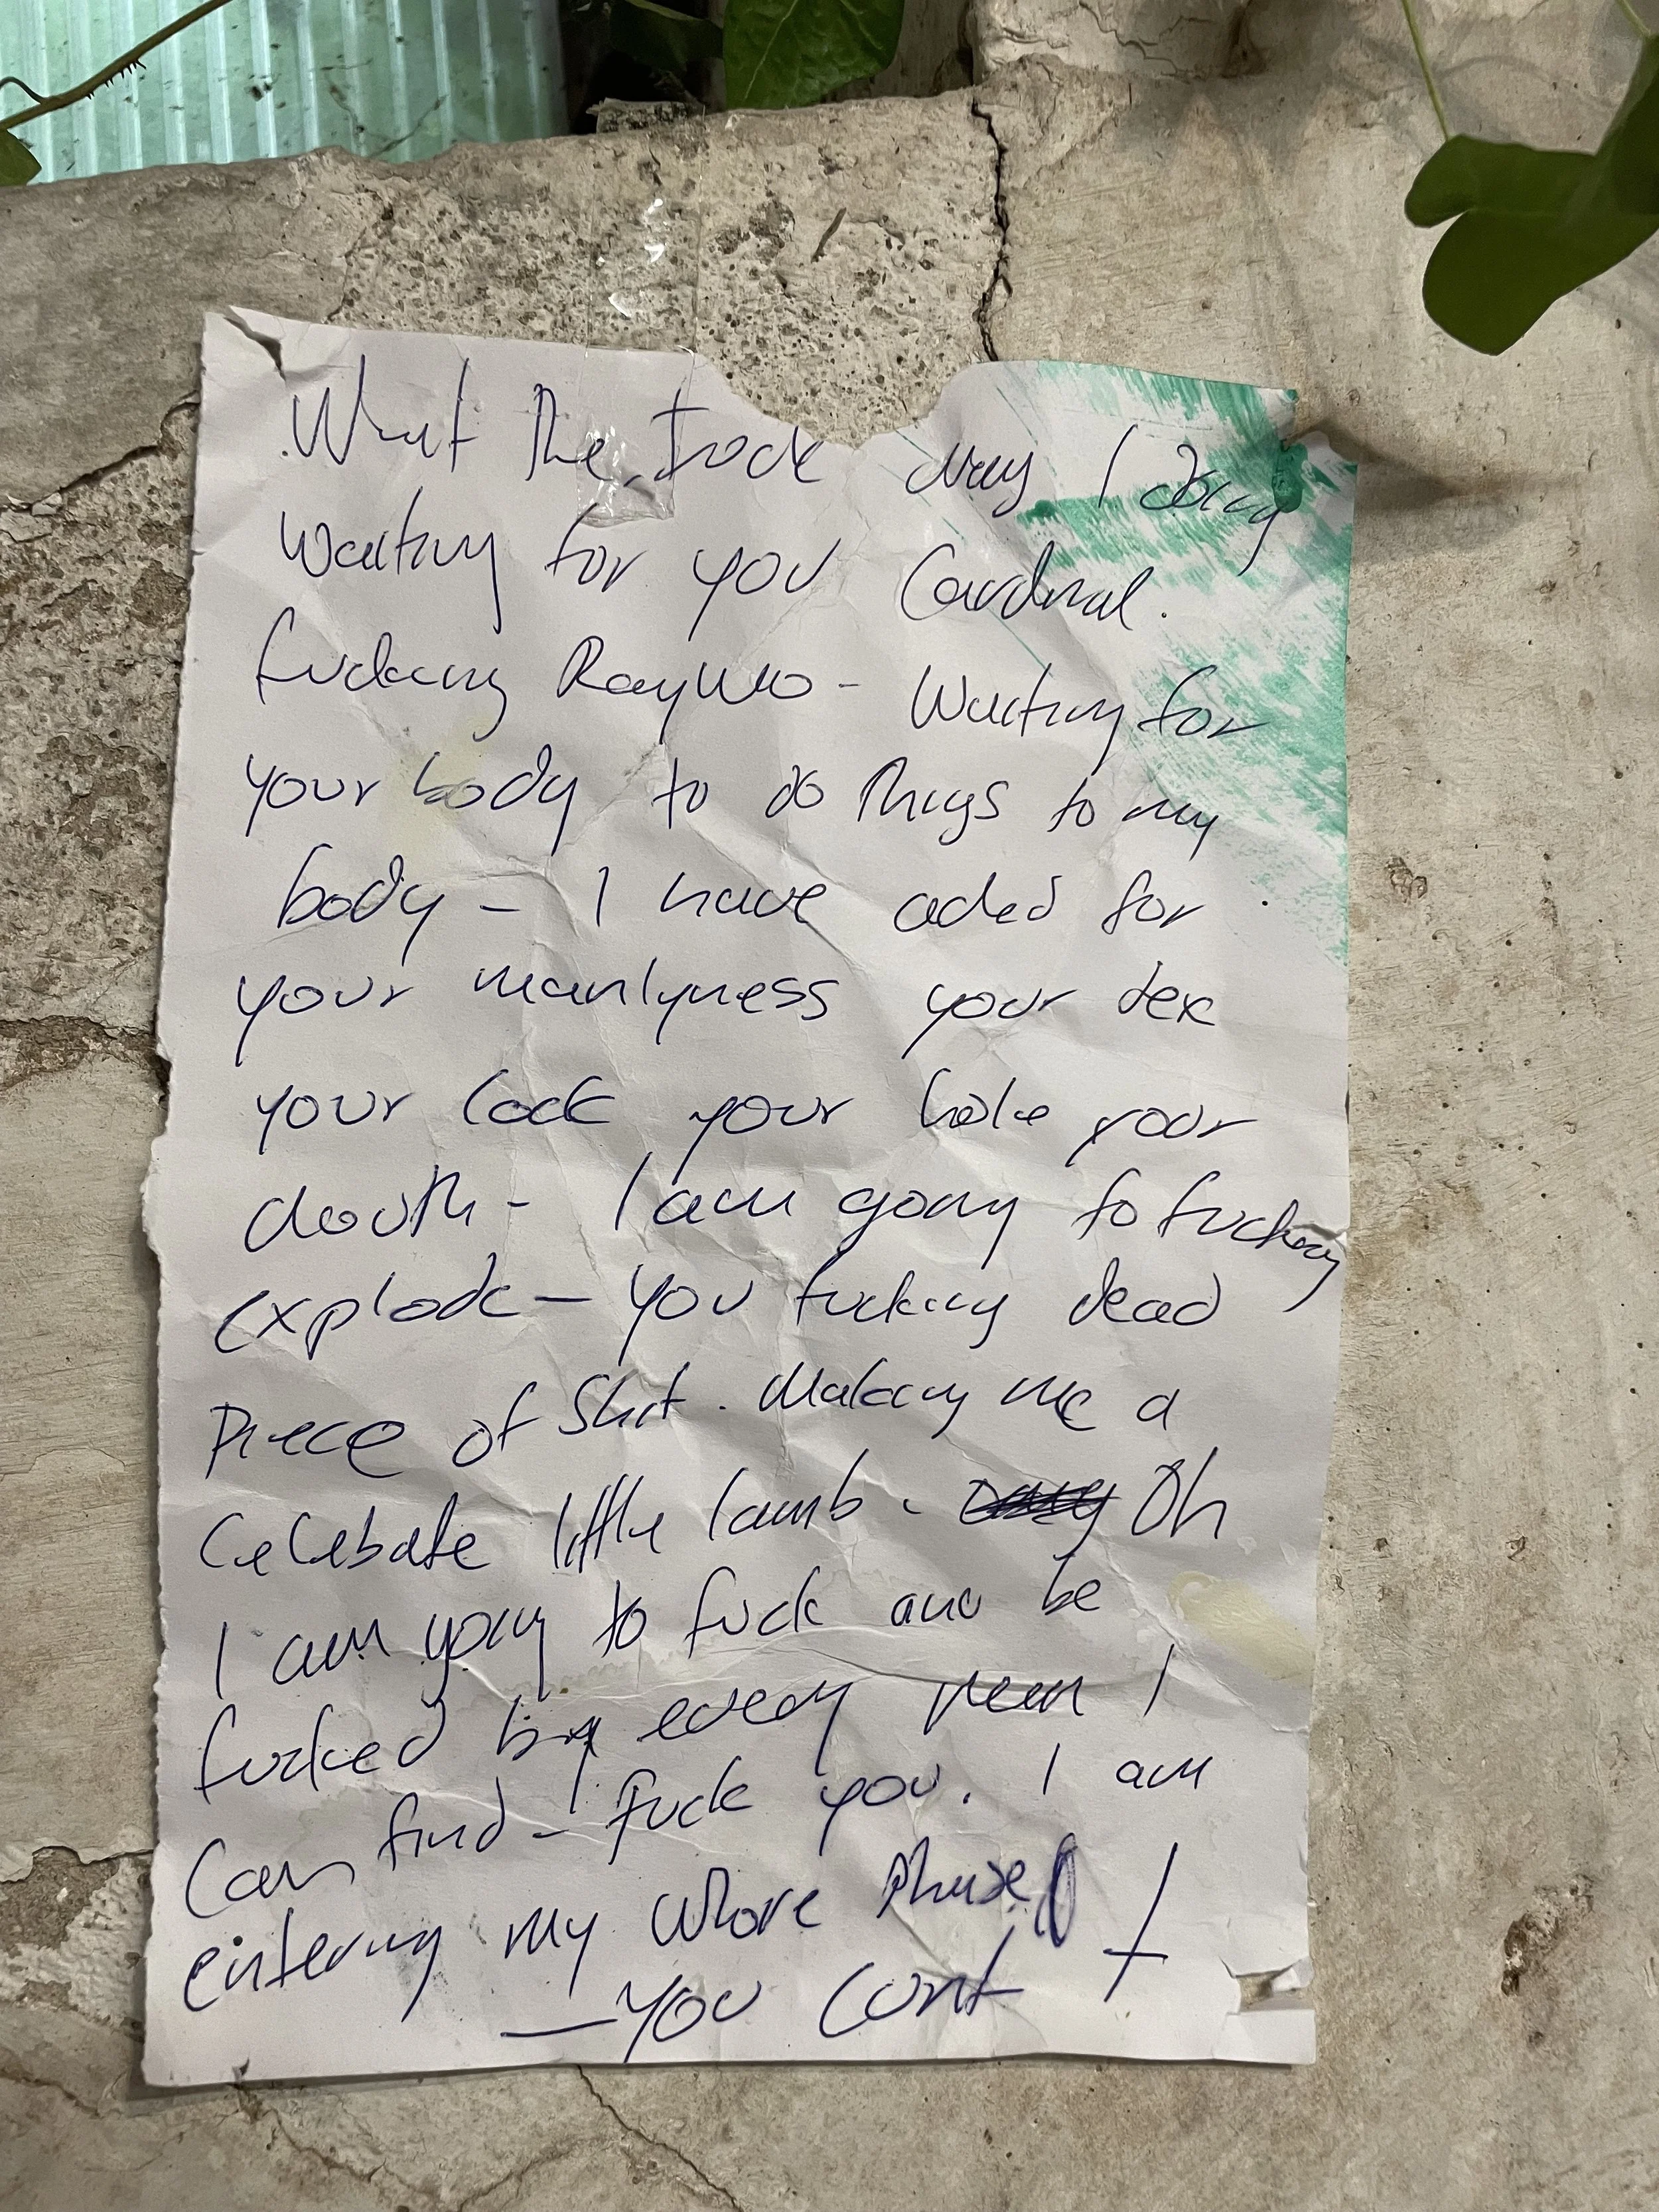 What the fuck am I doing
Waiting for you Cardinal.
fucking Raymo - Waiting for
your body to do things to my
body - I have ached for
your manlyness your sex
your cock your hole your
mouth - I am going to fucking
explode - you fucking dead
piece of shit. Making me a
Celebate little lamb - Oh
I am going to fuck and be
fucked by every men I
Can find - fuck you. I am
entering my whore phase
- you cunt